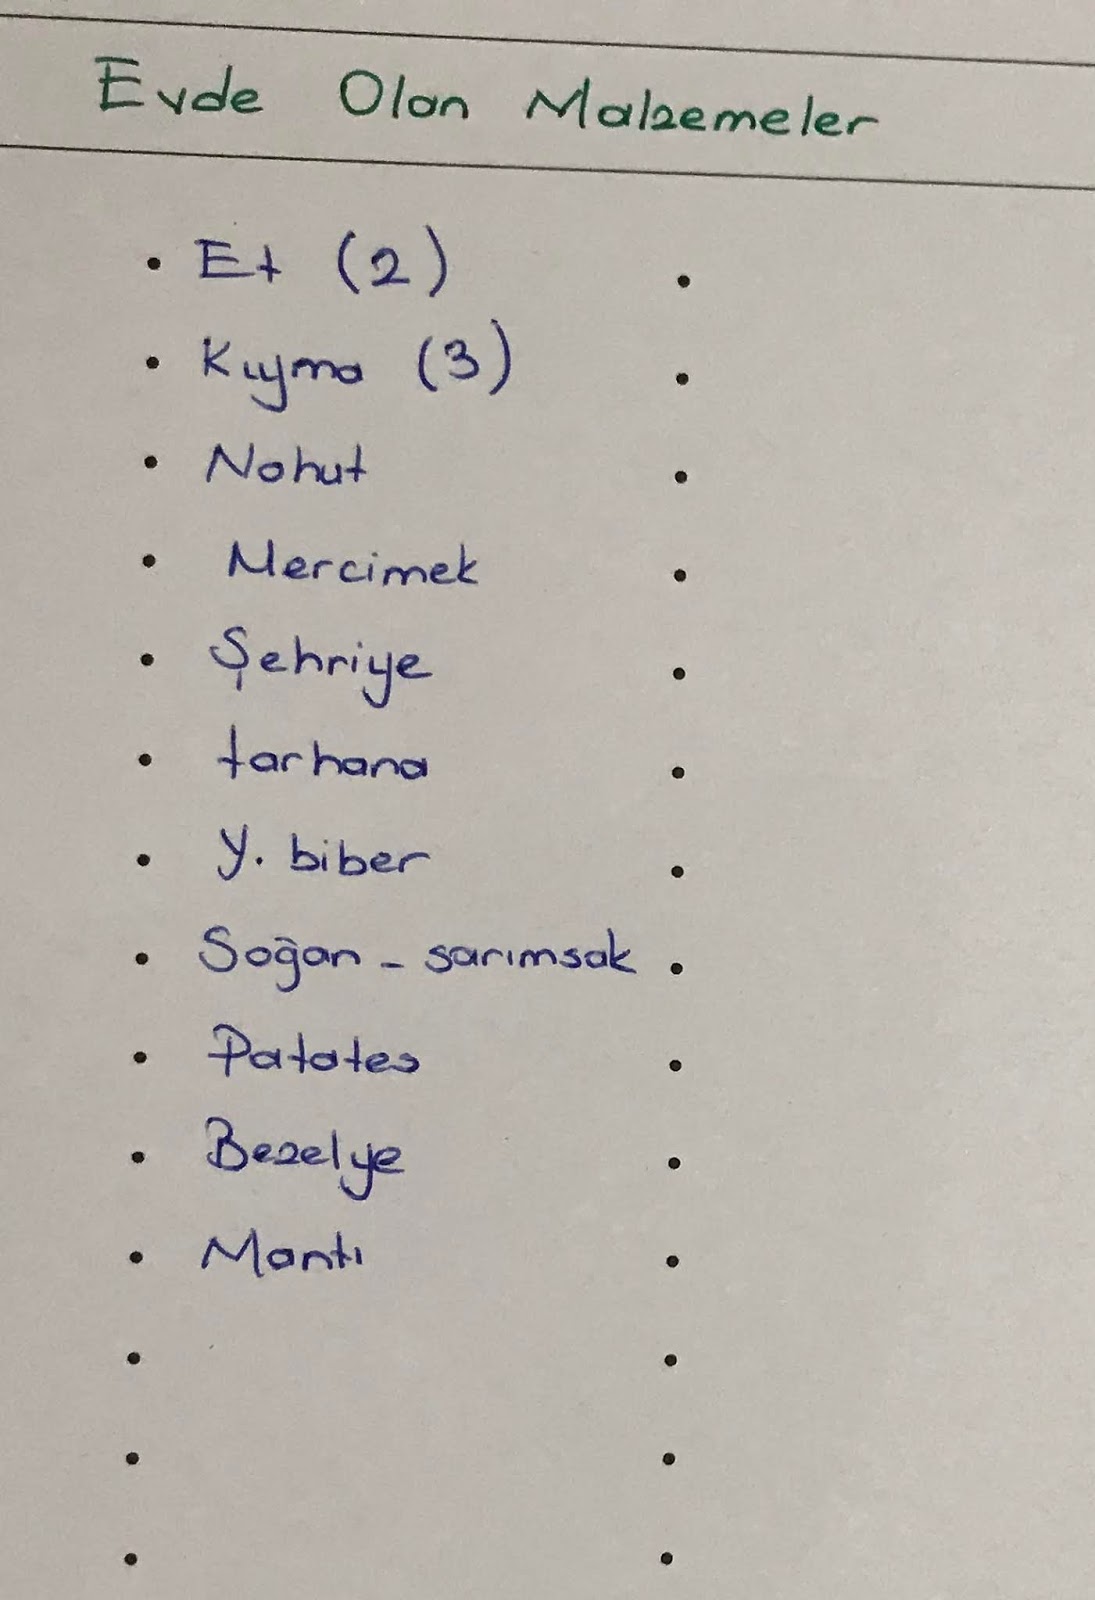 Evde Olan Malzemeler
• Et (2)
• Kıyma (3)
• Nohut
• Mercimek
• Şehriye
• tarhana
• Y. biber
• Soğan - sarımsak
• Patates
• Bezelye
• Mantı